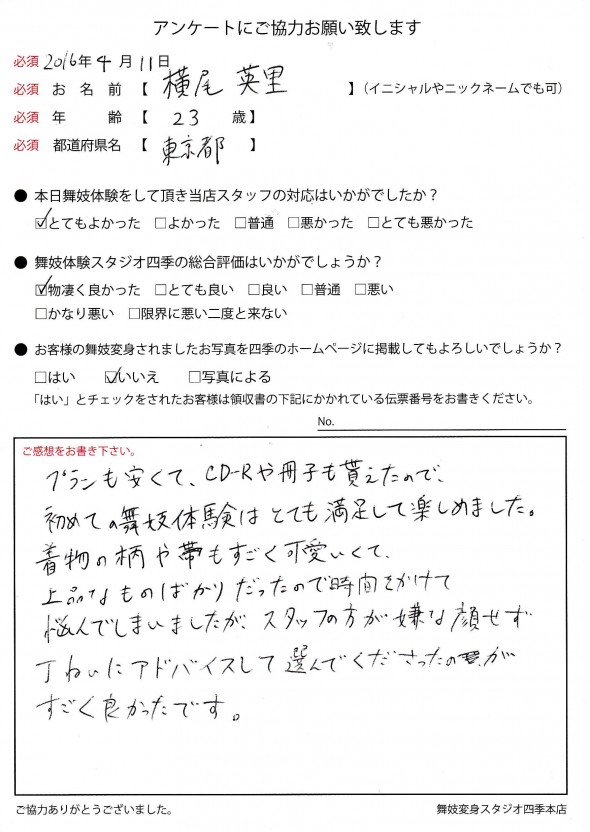 アンケートにご協力お願い致します
必須 2016年 4月 11日
必須 お名前 【 横尾 英里 】（イニシャルやニックネームでも可）
必須 年齢 【 23 歳】
必須 都道府県名 【 東京都 】
● 本日舞妓体験をして頂き当店スタッフの対応はいかがでしたか？
☑とてもよかった □よかった □普通 □悪かった □とても悪かった
● 舞妓体験スタジオ四季の総合評価はいかがでしょうか？
☑物凄く良かった □とても良い □良い □普通 □悪い
□かなり悪い □限界に悪い二度と来ない
● お客様の舞妓変身されましたお写真を四季のホームページに掲載してもよろしいでしょうか？
□はい ☑いいえ □写真による
「はい」とチェックをされたお客様は領収書の下記にかかれている伝票番号をお書きください。
No.
ご感想をお書き下さい。
プランも安くて、CD-Rや冊子も貰えたので、
初めての舞妓体験はとても満足して楽しめました。
着物の柄や帯もすごく可愛いくて、
上品なものばかりだったので時間をかけて
悩んでしまいましたが、スタッフの方が嫌な顔せず
丁ねいにアドバイスして選んでくださったのが
すごく良かったです。
ご協力ありがとうございました。
舞妓変身スタジオ四季本店